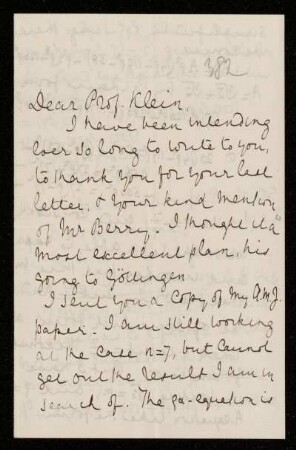 382
Dear Prof. Klein
I have been intending
ever so long to write to you,
to thank you for your last
letter, & your kind mention
of Mr Berry. I thought it a
most excellent plan, his
going to Göttingen
I sent you a copy of my A.M.J.
paper. I am still working
at the case n=7, but cannot
get out the result I am in
search of. The equation is